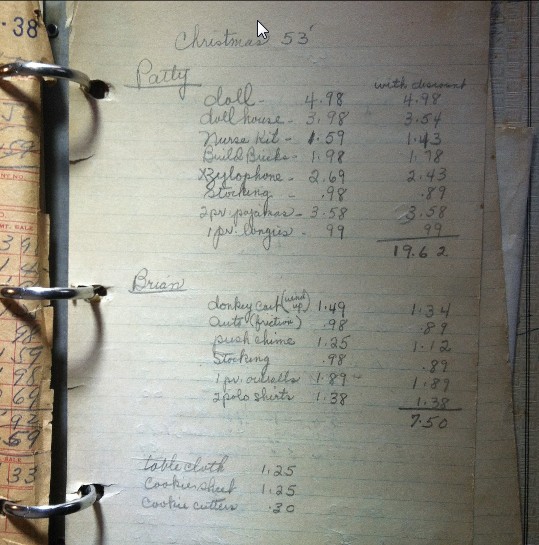 .38
Christmas 53'
Patty
with discount
doll - 4.98 4.98
doll house - 3.98 3.54
Nurse Kit - 1.59 1.43
Build Bricks - 1.98 1.78
Xylophone - 2.69 2.43
Stocking - .98 .89
2 pr. pajamas - 3.58 3.58
1 pr. longies - 99 .99
19.62
Brian
donkey cart (wind up) 1.49 1.34
auto (friction) .98 .89
push chime 1.25 1.12
Stocking .98 .89
1 pr. overalls 1.89 - 1.89
2 polo shirts 1.38 1.38
7.50
table cloth 1.25
Cookie sheet 1.25
Cookie cutters .30
33